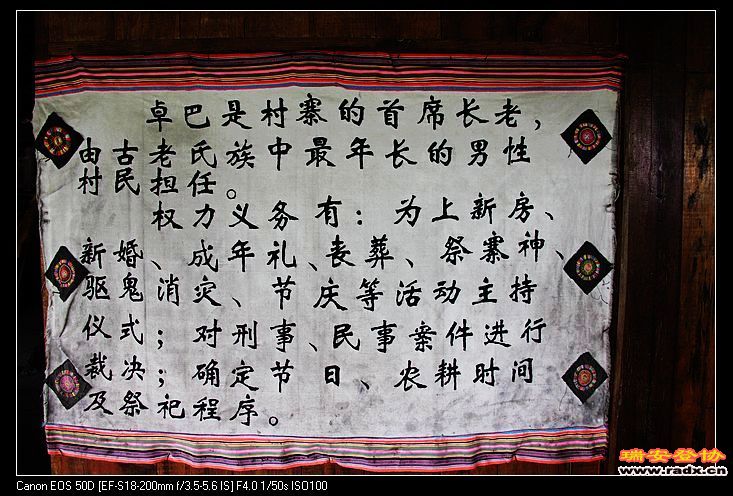 卓巴是村寨的首席长老，
由古老氏族中最年长的男性
村民担任。
权力义务有：为上新房、
新婚、成年礼、丧葬、祭寨神、
驱鬼消灾、节庆等活动主持
仪式；对刑事、民事案件进行
裁决；确定节日、农耕时间
及祭祀程序。
瑞安登协
www.radx.cn
Canon EOS 50D [EF-S18-200mm f/3.5-5.6 IS] F4.0 1/50s ISO100